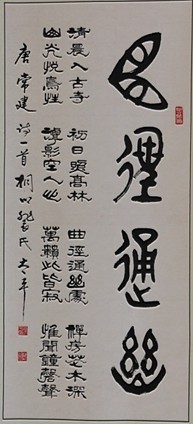 曲徑通幽
清晨入古寺 初日照高林 曲徑通幽處 禪房花木深
山光悅鳥性 潭影空人心 萬籟此皆寂 惟聞鐘磬聲
唐常建詩一首 桐 氏